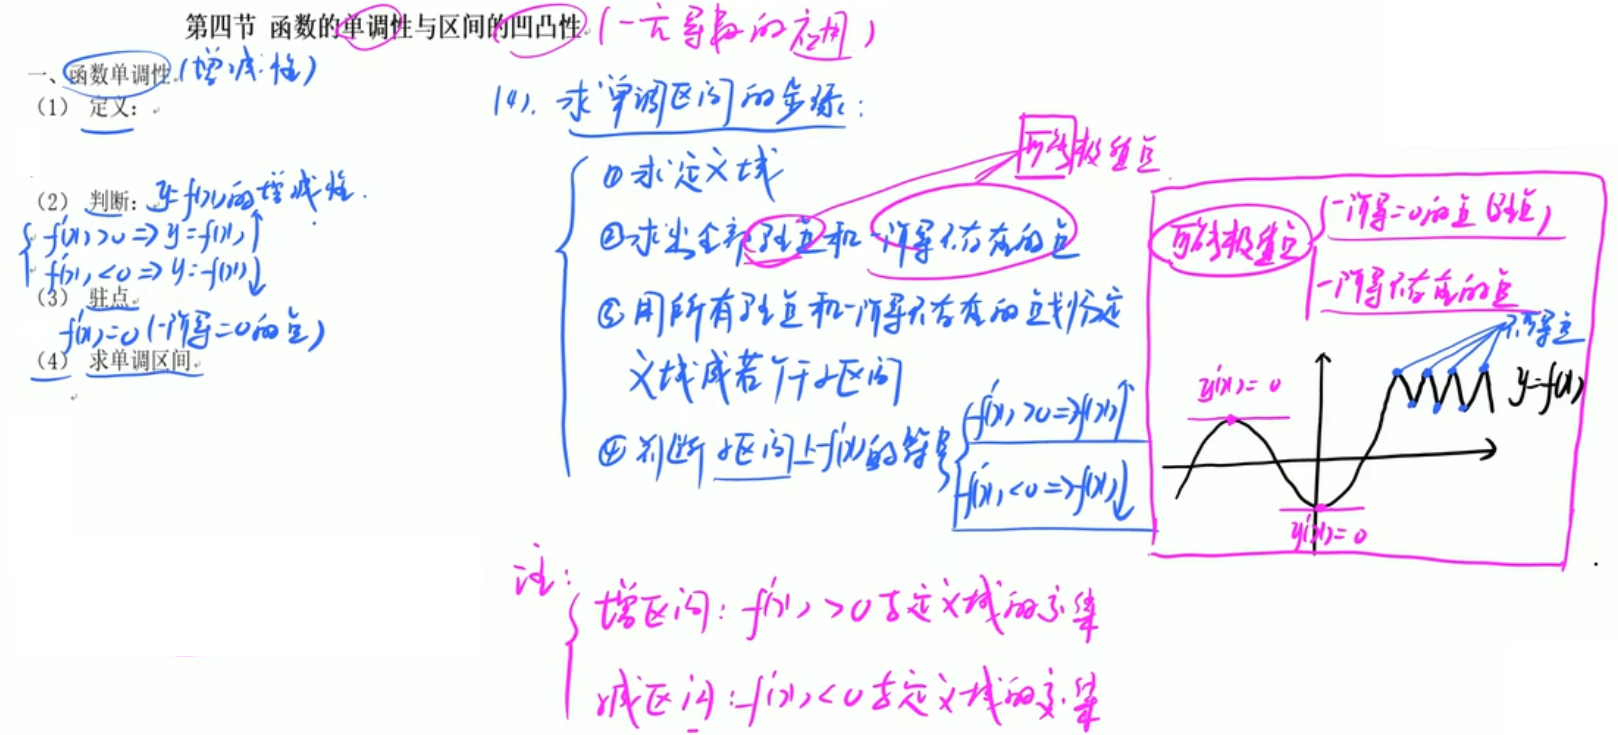 第四节 函数的单调性与区间的凹凸性 (一元导数的应用)
一、函数单调性 (增减性)
(1) 定义:
(2) 判断: y=f(x)的增减性.
f'(x)>0 => y=f(x)↑
f'(x)<0 => y=f(x)↓
(3) 驻点
f'(x)=0 (一阶导=0的点)
(4) 求单调区间
(4). 求单调区间的步骤:
①求定义域
②求出全部驻点和一阶导不存在的点
③用所有驻点和一阶导不存在的点划分定
义域成若干小区间
④判断小区间上f'(x)的符号
f'(x)>0 => f(x)↑
f'(x)<0 => f(x)↓
可能极值点
可能极值点
一阶导=0的点 (驻点)
一阶导不存在的点
不可导点
y'(x)=0
y=f(x)
y'(x)=0
注:
增区间: f'(x)>0与定义域的交集
减区间: f'(x)<0与定义域的交集